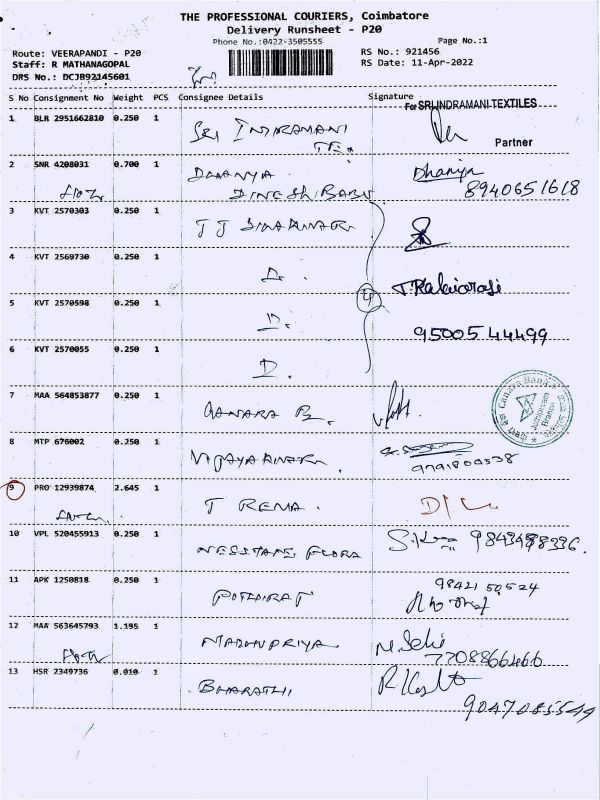 THE PROFESSIONAL COURIERS, Coimbatore
Delivery Runsheet - P20
Phone No.:0422-3505555 Page No.:1
Route: VEERAPANDI - P20 RS No.: 921456
Staff: R MATHANAGOPAL RS Date: 11-Apr-2022
DRS No.: DCJB92145601
S No Consignment No Weight PCS Consignee Details Signature
For SRI INDRAMANI TEXTILES
1 BLR 2951662810 0.250 1 SRI INDRAMANI TEX
Partner
2 SNR 4208031 0.700 1 DHANYA Dhaniya
DINESH BABU 8940651618
3 KVT 2570303 0.250 1 T J
4 KVT 2569730 0.250 1 D. T.Kalaiarasi
5 KVT 2570598 0.250 1 D. 4 95005 44499
6 KVT 2570055 0.250 1 D.
7 MAA 564853877 0.250 1 CANARA B. Canara Bank
8 MTP 676002 0.250 1
9 PRO 12939874 2.645 1 T REMA.
10 VPL 520455913 0.250 1 FLORA
11 APK 1250818 0.250 1
12 MAA 563645793 1.195 1 MADHUPRIYA.
7708866466
13 HSR 2349736 0.010 1 BHARATHI
9047085549